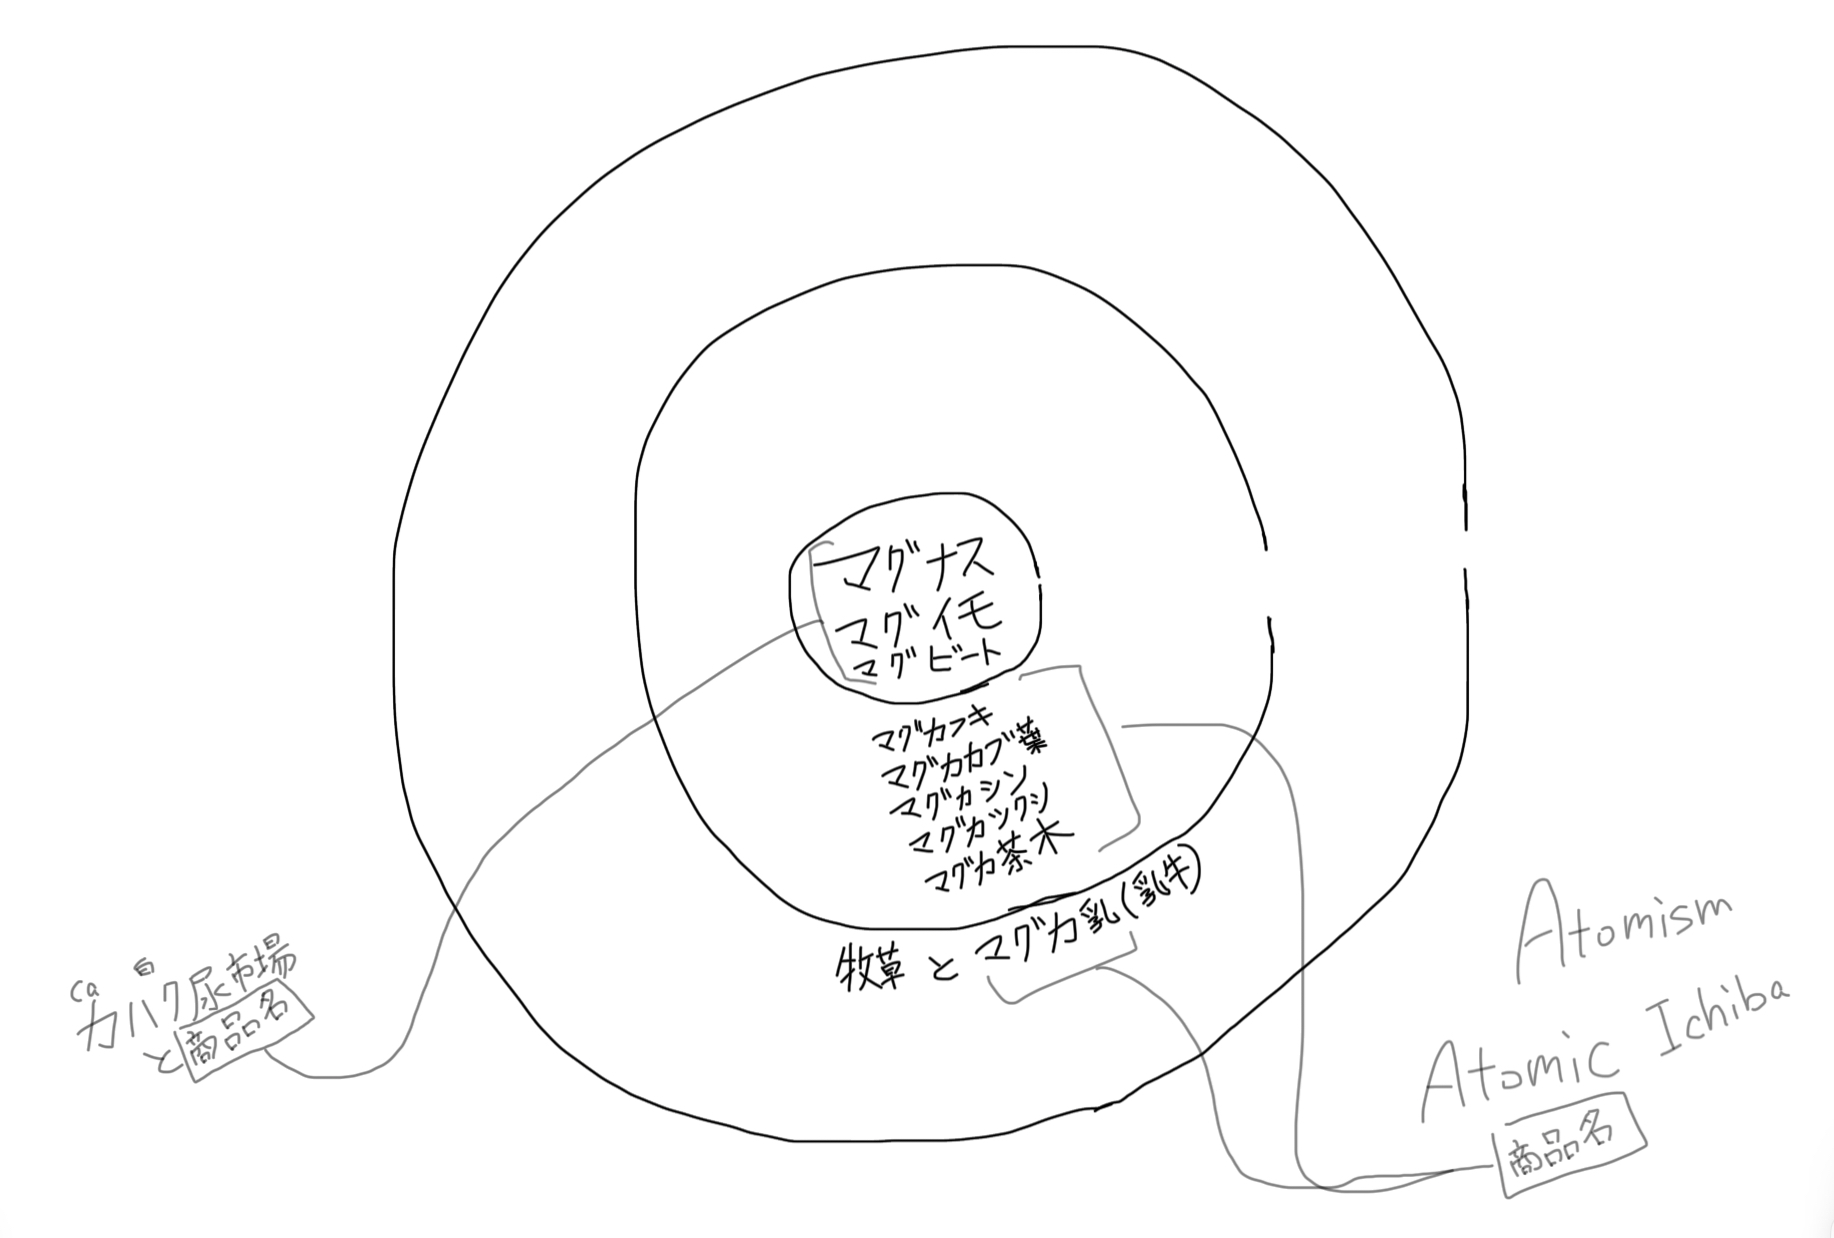 マグナス
マグイモ
マグビート
マグカフキ
マグカカブ葉
マグカシン
マグカツクシ
マグカ茶木
牧草とマグカ乳(乳牛)
Ca 白
カハク尿市場
と商品名
Atomism
Atomic Ichiba
商品名